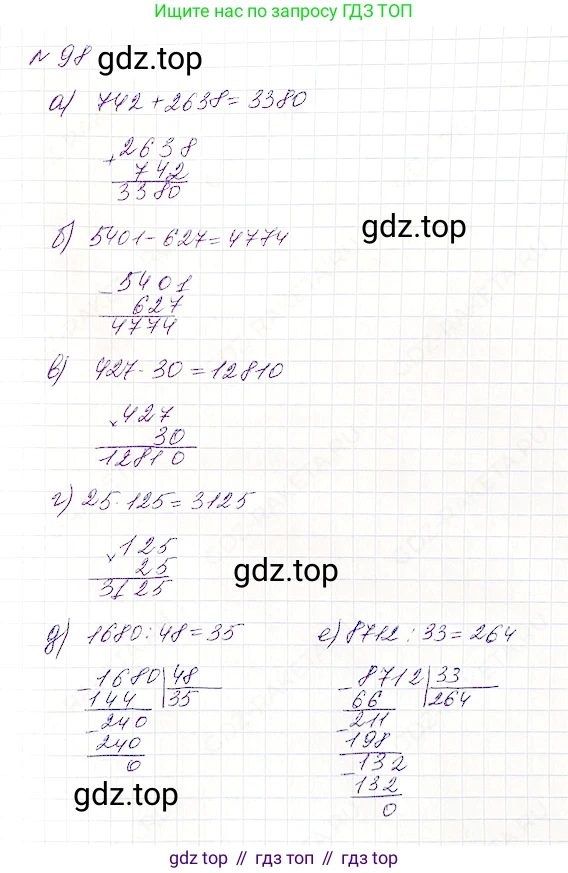 Ищите нас по запросу ГДЗ ТОП
№ 98 gdz.top
а) 742 + 2638 = 3380
+ 2638
742
3380
б) 5401 - 627 = 4774
gdz.top
- 5401
627
4774
в) 427 · 30 = 12810
× 427
30
12810
г) 25 · 125 = 3125
× 125
25
3125
gdz.top
д) 1680 : 48 = 35
- 1680 | 48
144 | 35
- 240
240
0
е) 8712 : 33 = 264
- 8712 | 33
66 | 264
- 211
198
- 132
132
0
gdz.top
gdz top // гдз топ // gdz.top